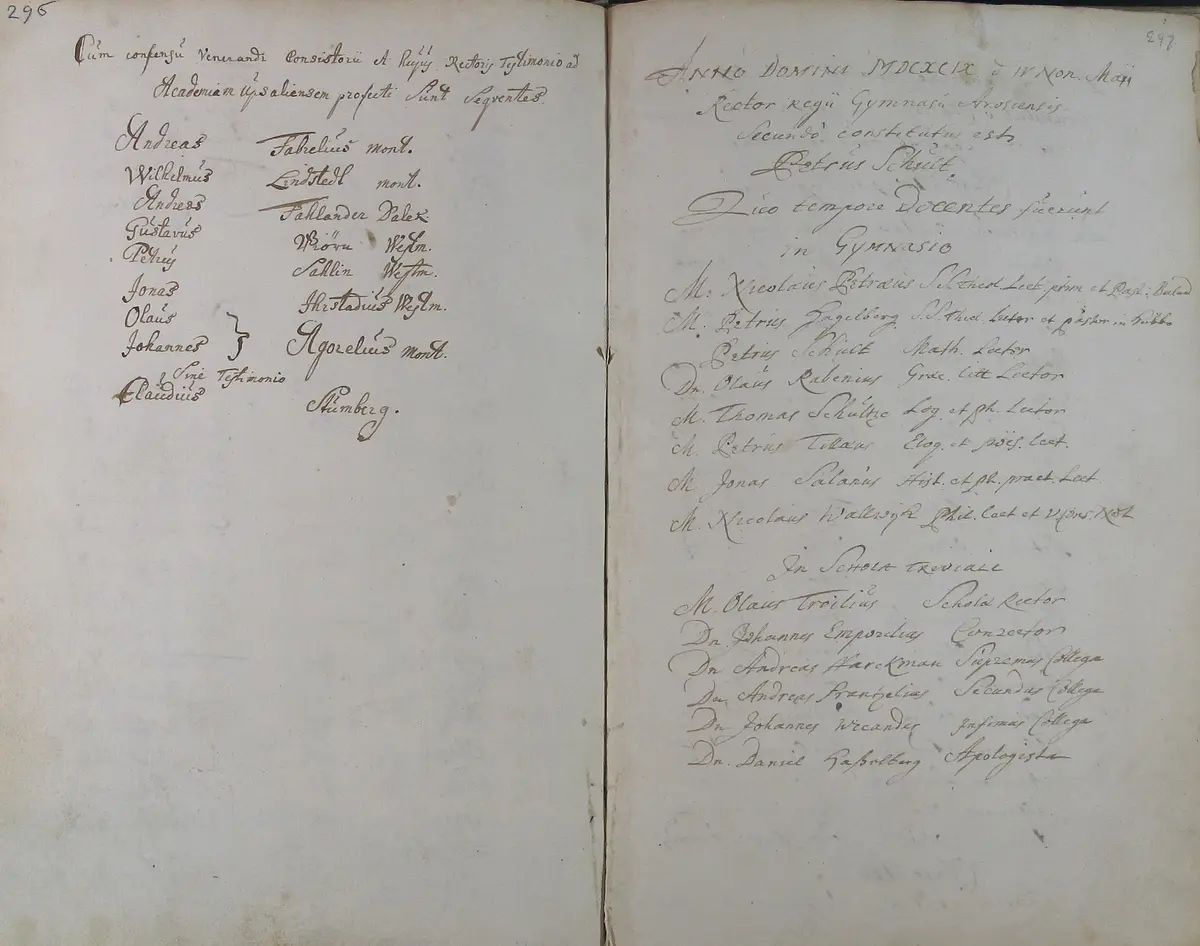 296
Cum consensu Venerandi Consistorii et hujus Rectoris Testimonio ad
Academiam Upsaliensem profecti Sunt Seqventes.
Andreas Fabrelius mont.
Wilhelmus Lindstedt mont.
Andreas Fahlander Dalek.
Gustavus Biörn Westm.
Petrus Sahlin Westm.
Jonas Ihrstadius Westm.
Olaus
Johannes } Agorelius mont.
Sine Testimonio
Claudius Stumberg.
297
ANNO DOMINI MDCXCIX d IV Non. Maji
Rector Regii Gymnasii Arosiensis
Secundò constitutus est
Petrus Schult.
Quo tempore Docentes fuerunt
in GYMNASIO
M. Nicolaus Petræus S.S. theol Lect prim et Past:
M. Petrus Ingelberg S.S. Theol. Lector et pastor in Hubbo
Petrus Schult Math. Lector
Dn. Olaus Rabenius Græc. litt Lector
M. Thomas Schultze Log. et ph. Lector
M. Petrus Tillæus Eloq. et poës. lect.
M. Jonas Salanus Hist. et ph. pract. Lect.
M. Nicolaus Wallwijk Phil. lect et Not
In SCHOLA TRIVIALI
M. Olaus Troilius Scholæ Rector
Dn. Johannes Emporelius Conrector
Dn Andreas Harckman Supremus Collega
Dn. Andreas Frantzelius Secundus Collega
Dn. Johannes Wecander Infimus Collega
Dn. Daniel Haßelberg Apologista